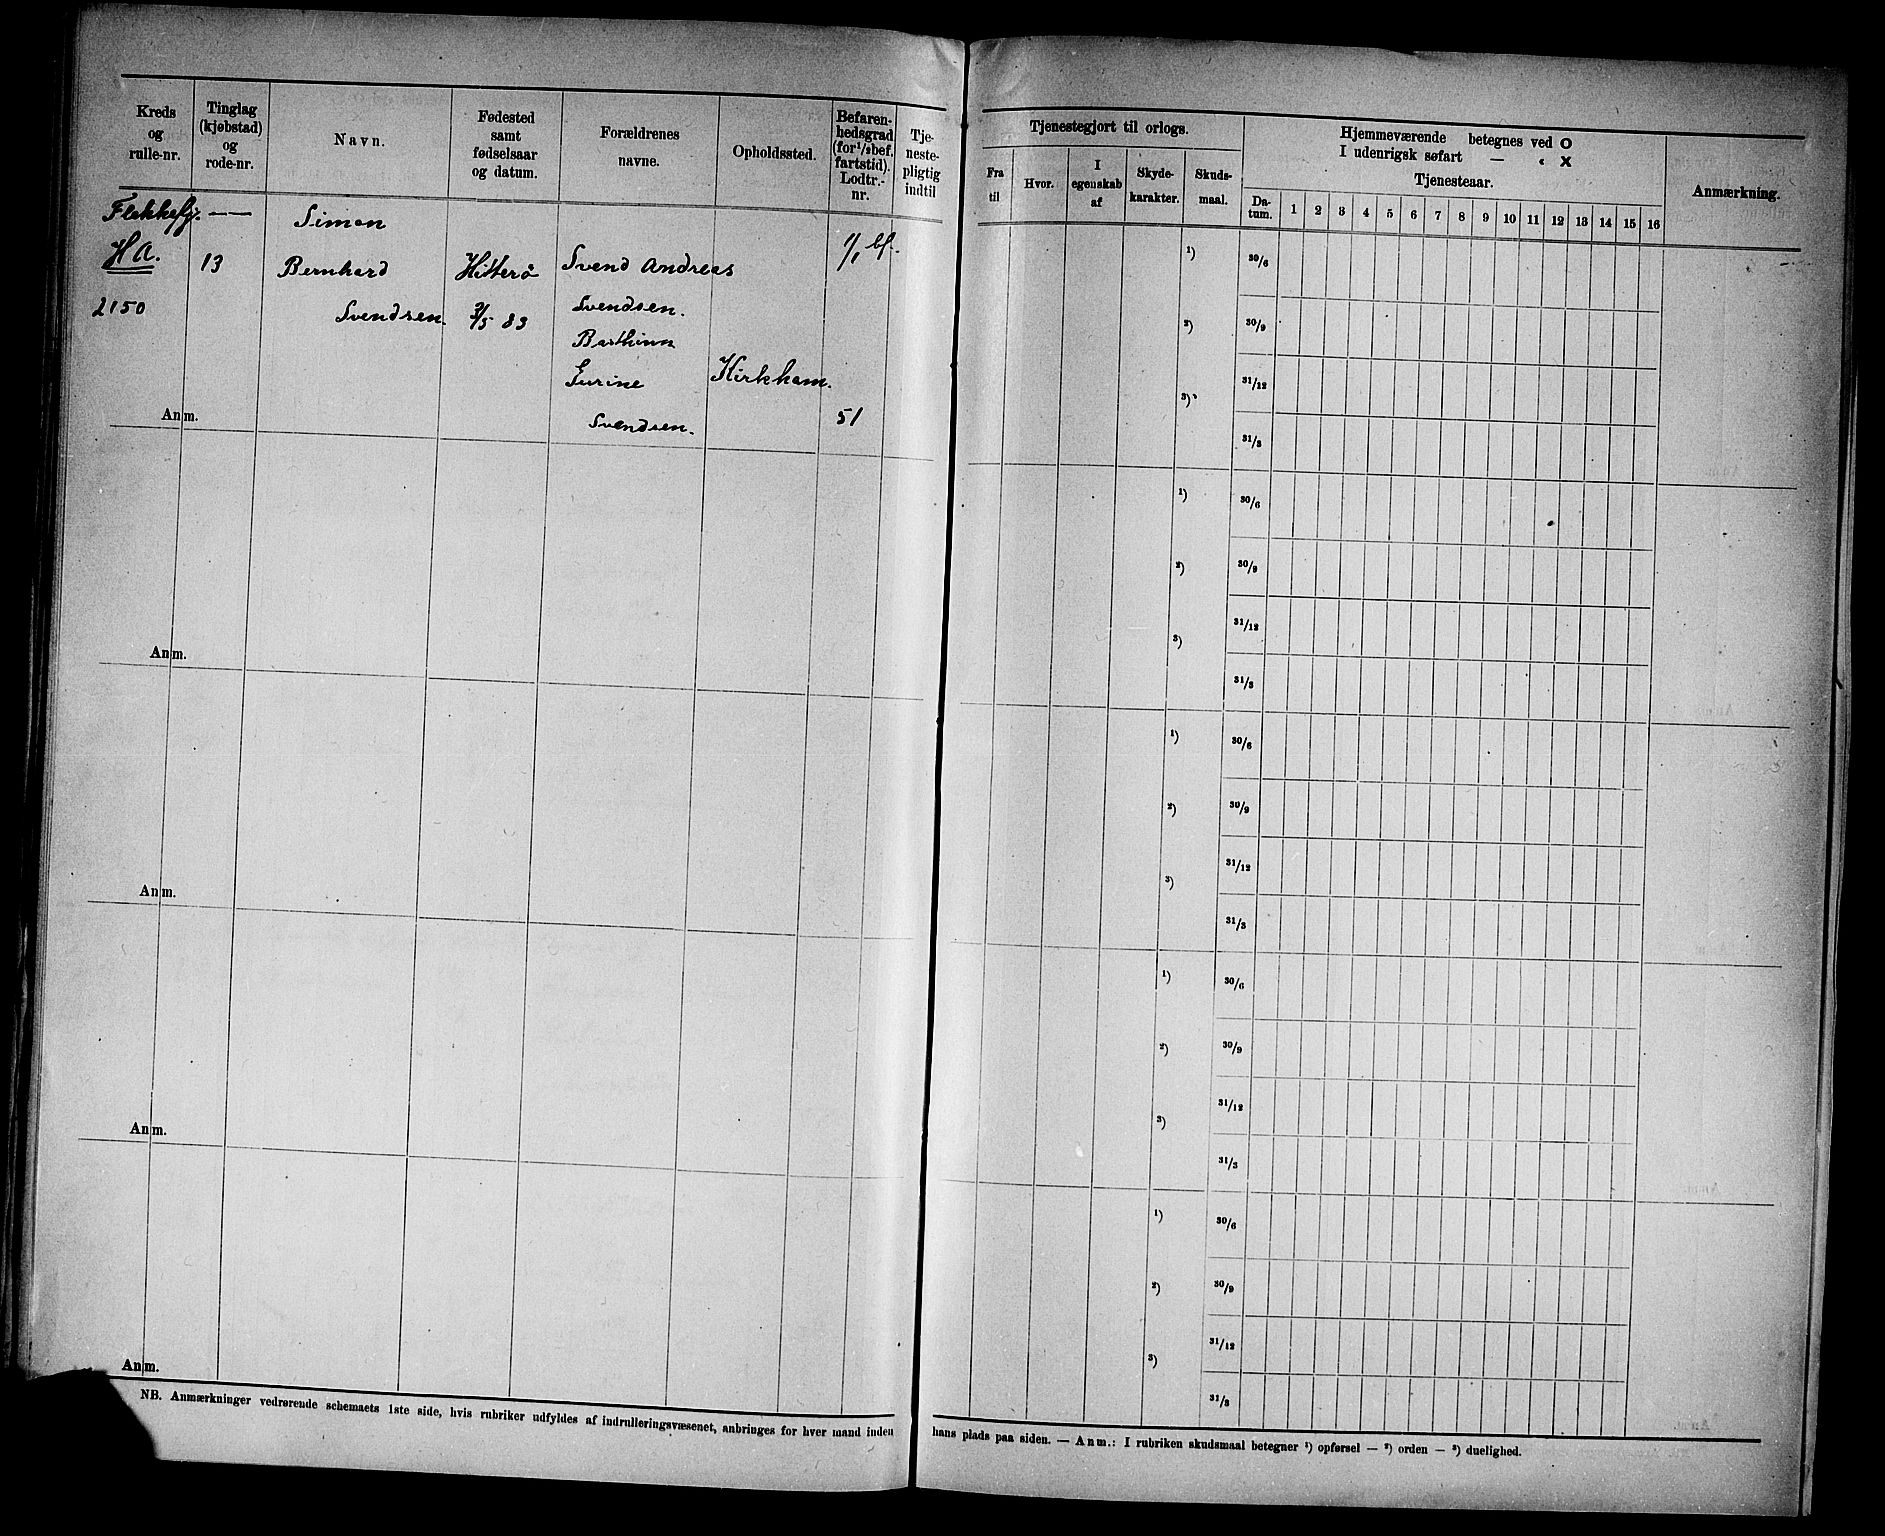 Kreds og rulle-nr.
Tinglag (kjøbstad) og rode-nr.
Navn.
Fødested samt fødselsaar og datum.
Forældrenes navne.
Opholdssted.
Befarenhedsgrad (for 1/2 bef. fartstid). Lodtr.-nr.
Tjenestepligtig indtil
Flekkefj. —
H A.
2150
13
Simon
Bernhard
Svendsen.
Hitterö
5 83
Svend Andreas
Svendsen.
Svendsen.
Kirkham.
1/1 bf.
51
Anm.
Anm.
Anm.
Anm.
Anm.
NB. Anmærkninger vedrørende schemaets 1ste side, hvis rubriker udfyldes af indrulleringsvæsenet, anbringes for hver mand inden
Tjenestegjort til orlogs.
Fra til
Hvor.
I egenskab af
Skydekarakter.
Skudsmaal.
Hjemmeværende betegnes ved O
I udenrigsk søfart — " X
Tjenesteaar.
Datum. 1 2 3 4 5 6 7 8 9 10 11 12 13 14 15 16
Anmærkning.
1) 30/6
2) 30/9
31/12
3)
31/3
1) 30/6
2) 30/9
31/12
3)
31/3
1) 30/6
2) 30/9
31/12
3)
31/3
1) 30/6
2) 30/9
31/12
3)
31/3
1) 30/6
2) 30/9
31/12
3)
31/3
hans plads paa siden. — Anm.: I rubriken skudsmaal betegner 1) opførsel — 2) orden — 3) duelighed.